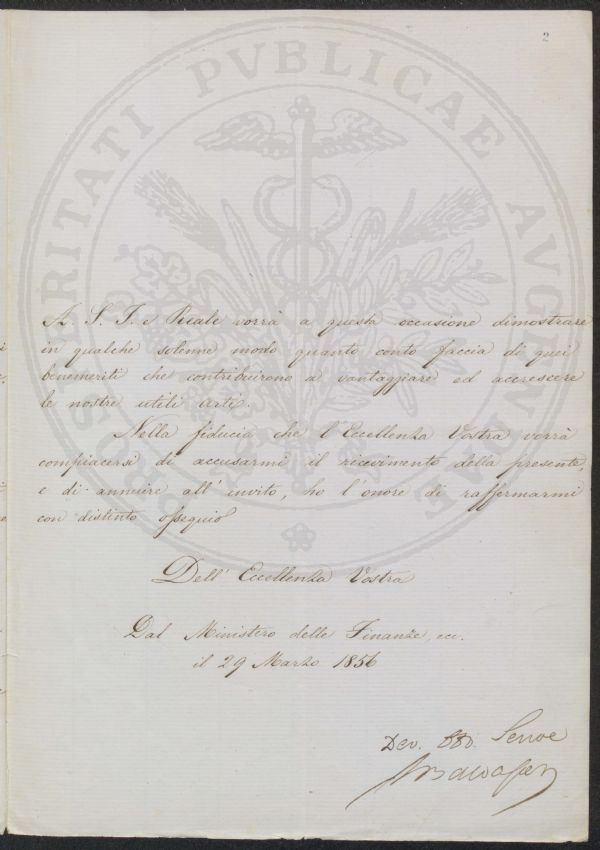 2
PROSPERITATI PVBLICAE AVGENDAE
A. S. I. e Reale vorrà a questa occasione dimostrare
in qualche solenne modo quanto conto faccia di quei
benemeriti che contribuirono a vantaggiare ed accrescere
le nostre utili arti.
Nella fiducia che l'Eccellenza Vostra vorrà
compiacersi di accusarmi il ricevimento della presente,
e di annuire all'invito, ho l'onore di raffermarmi
con distinto ossequio
Dell'Eccellenza Vostra
Dal Ministero delle Finanze, ecc.
il 29 Marzo 1856
Dev. Obb. Servo